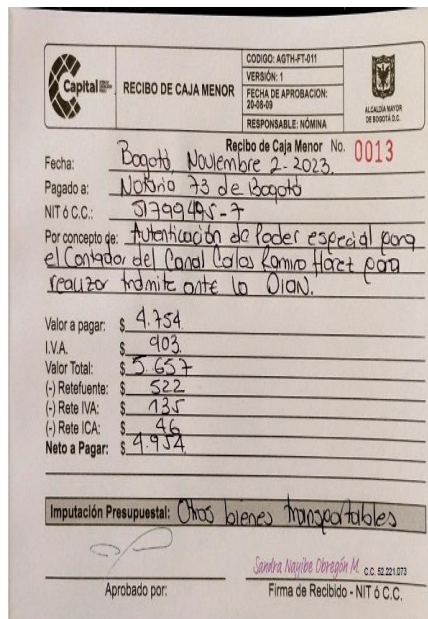 Capital
RECIBO DE CAJA MENOR
CODIGO: AGTH-FT-011
VERSIÓN: 1
FECHA DE APROBACIÓN: 20-08-09
RESPONSABLE: NÓMINA
ALCALDÍA MAYOR
DE BOGOTÁ D.C.
Recibo de Caja Menor No. 0013
Fecha: Bogotá, Noviembre 2-2023.
Pagado a: Notario 73 de Bogotá
NIT ó C.C.: 51799495-7
Por concepto de: Autenticación de Poder especial para
el Contador del Canal Carlos Ramiro Florez para
realizar trámite ante la DIAN.
Valor a pagar: $ 4.754
I.V.A. $ 903
Valor Total: $ 5.657
(-) Retefuente: $ 522
(-) Rete IVA: $ 135
(-) Rete ICA: $ 46
Neto a Pagar: $ 4.954
Imputación Presupuestal: Otros bienes transportables
Sandra Nayibe Obregón M. C.C. 52.221.073
Aprobado por:
Firma de Recibido - NIT ó C.C.